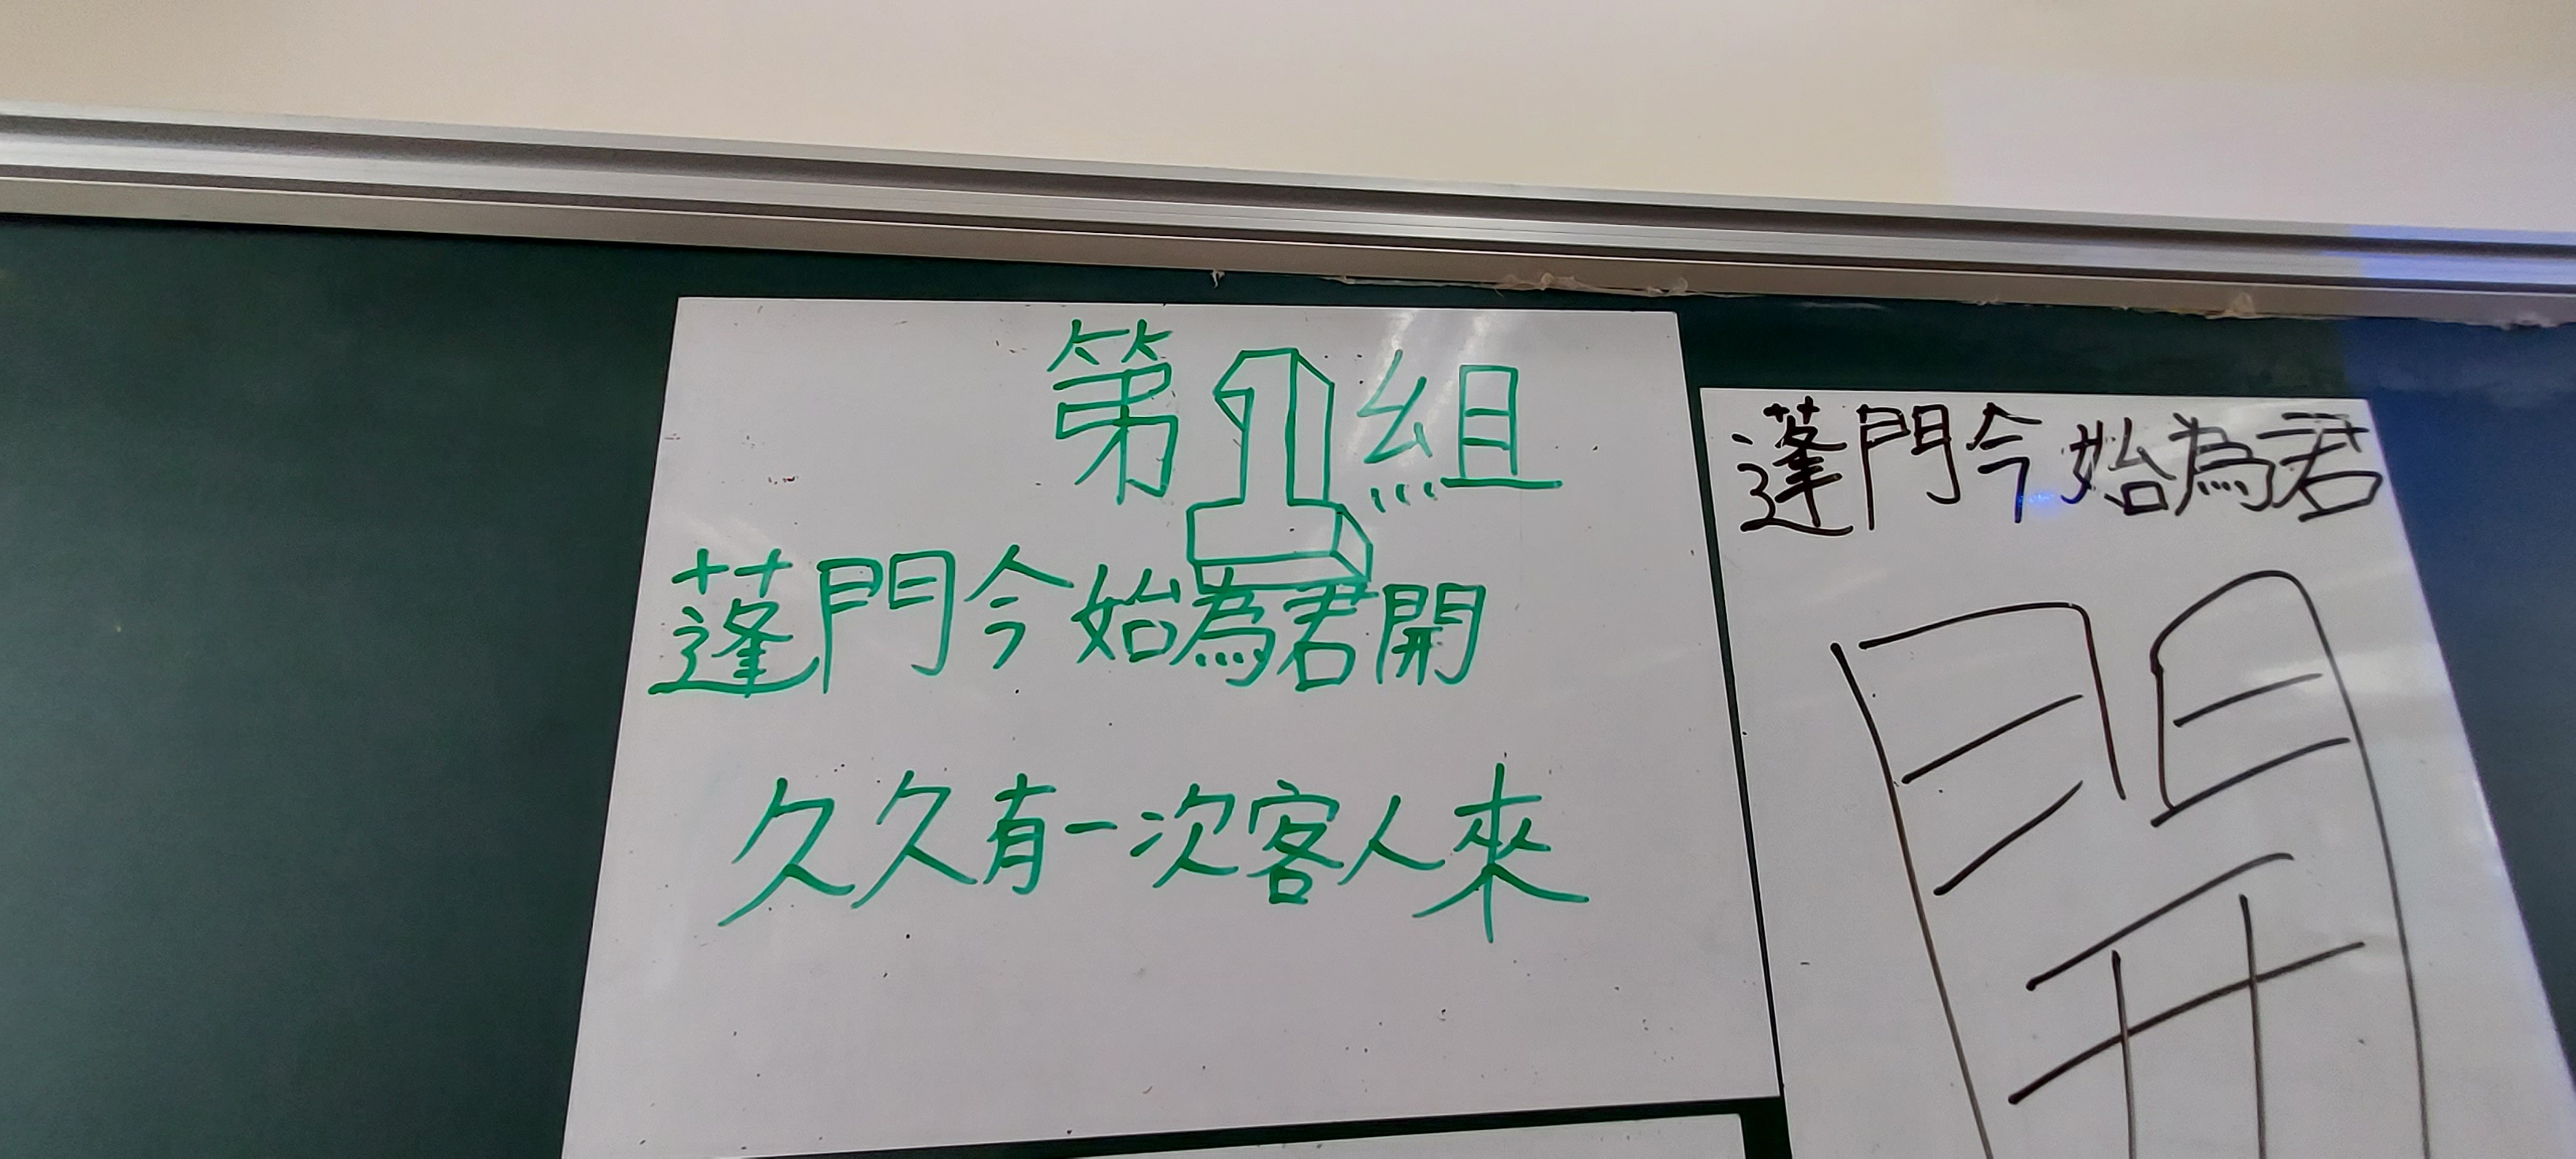 第1組
蓬門今始為君開
久久有一次客人來
蓬門今始為君
開